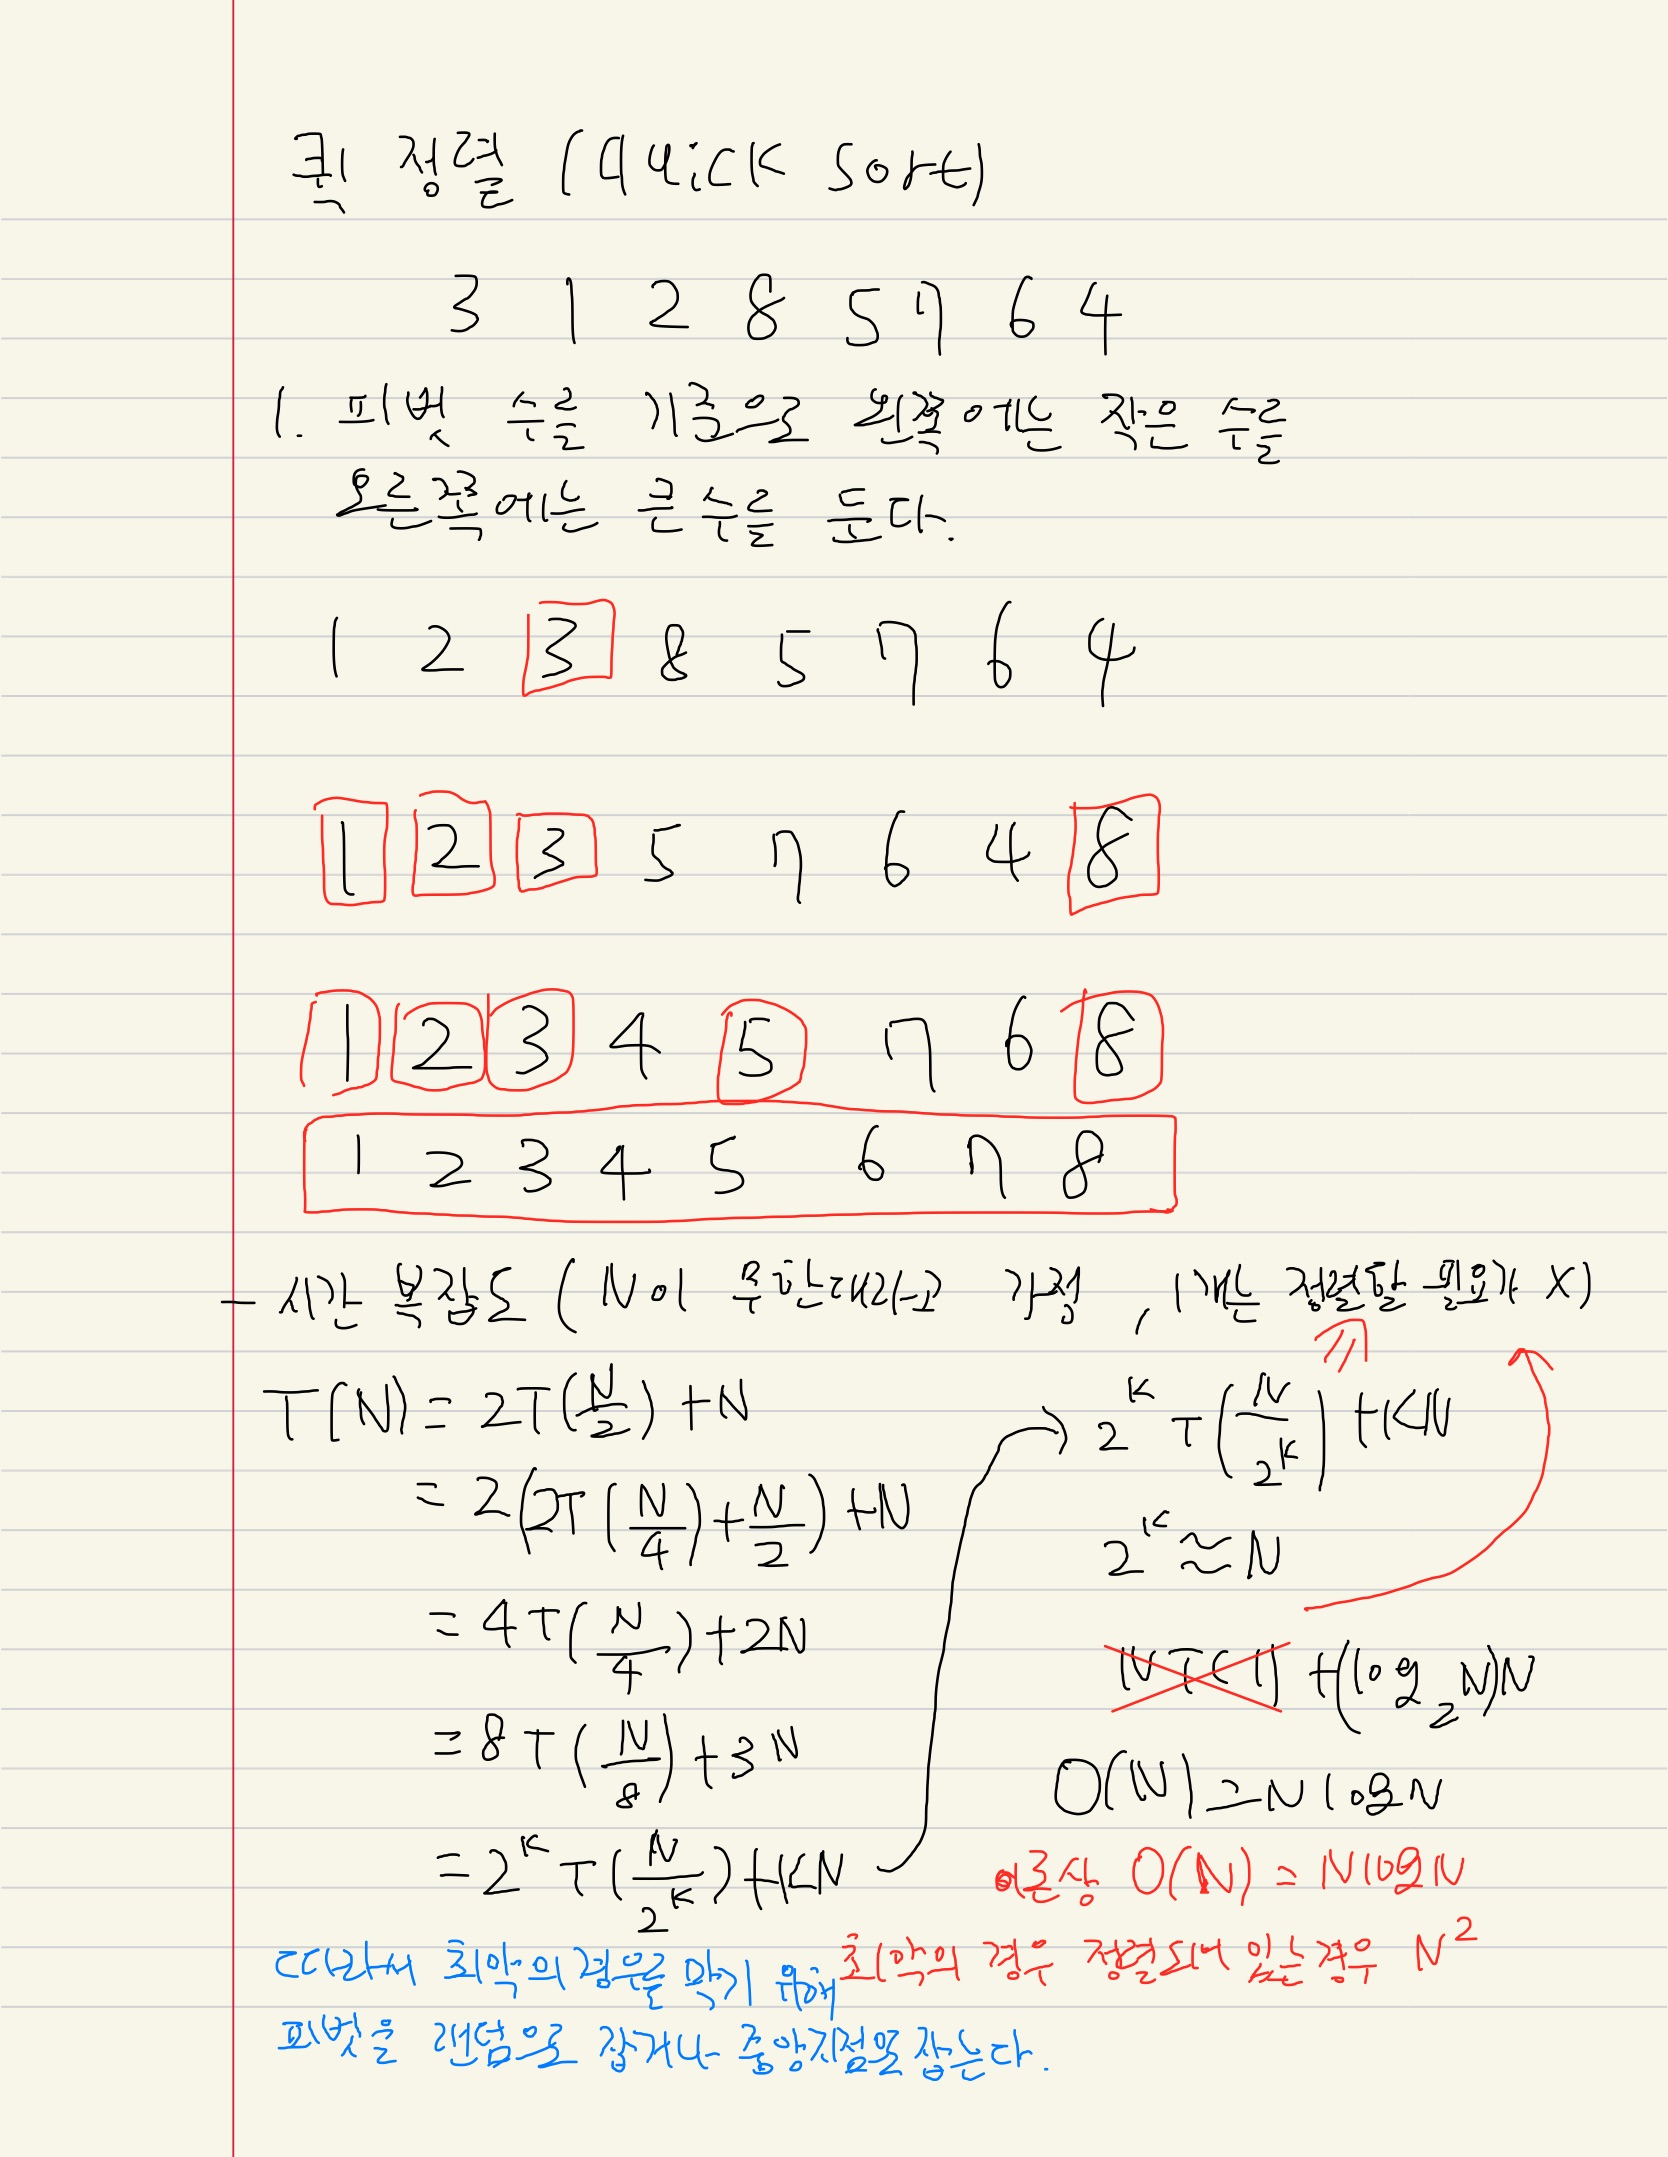 퀵 정렬 (Quick Sort)
3 1 2 8 5 7 6 4
1. 피벗 수를 기준으로 왼쪽에는 작은 수를
오른쪽에는 큰 수를 둔다.
1 2 3 8 5 7 6 4
1 2 3 5 7 6 4 8
1 2 3 4 5 7 6 8
1 2 3 4 5 6 7 8
- 시간 복잡도 (N이 무한대라고 가정, 1개는 정렬할 필요가 X)
T(N) = 2T(N/2) + N
= 2(2T(N/4) + N/2) + N
= 4T(N/4) + 2N
= 8T(N/8) + 3N
= 2^K T(N/2^K) + KN
→ 2^K T(N/2^K) + KN
2^K ≈ N
N T(1) + (log₂N)N
O(N) = N log N
이론상 O(N) = N log N
최악의 경우 정렬되어 있는경우 N²
따라서 최악의 경우를 막기 위해
피벗을 랜덤으로 잡거나 중앙지점을 잡는다.